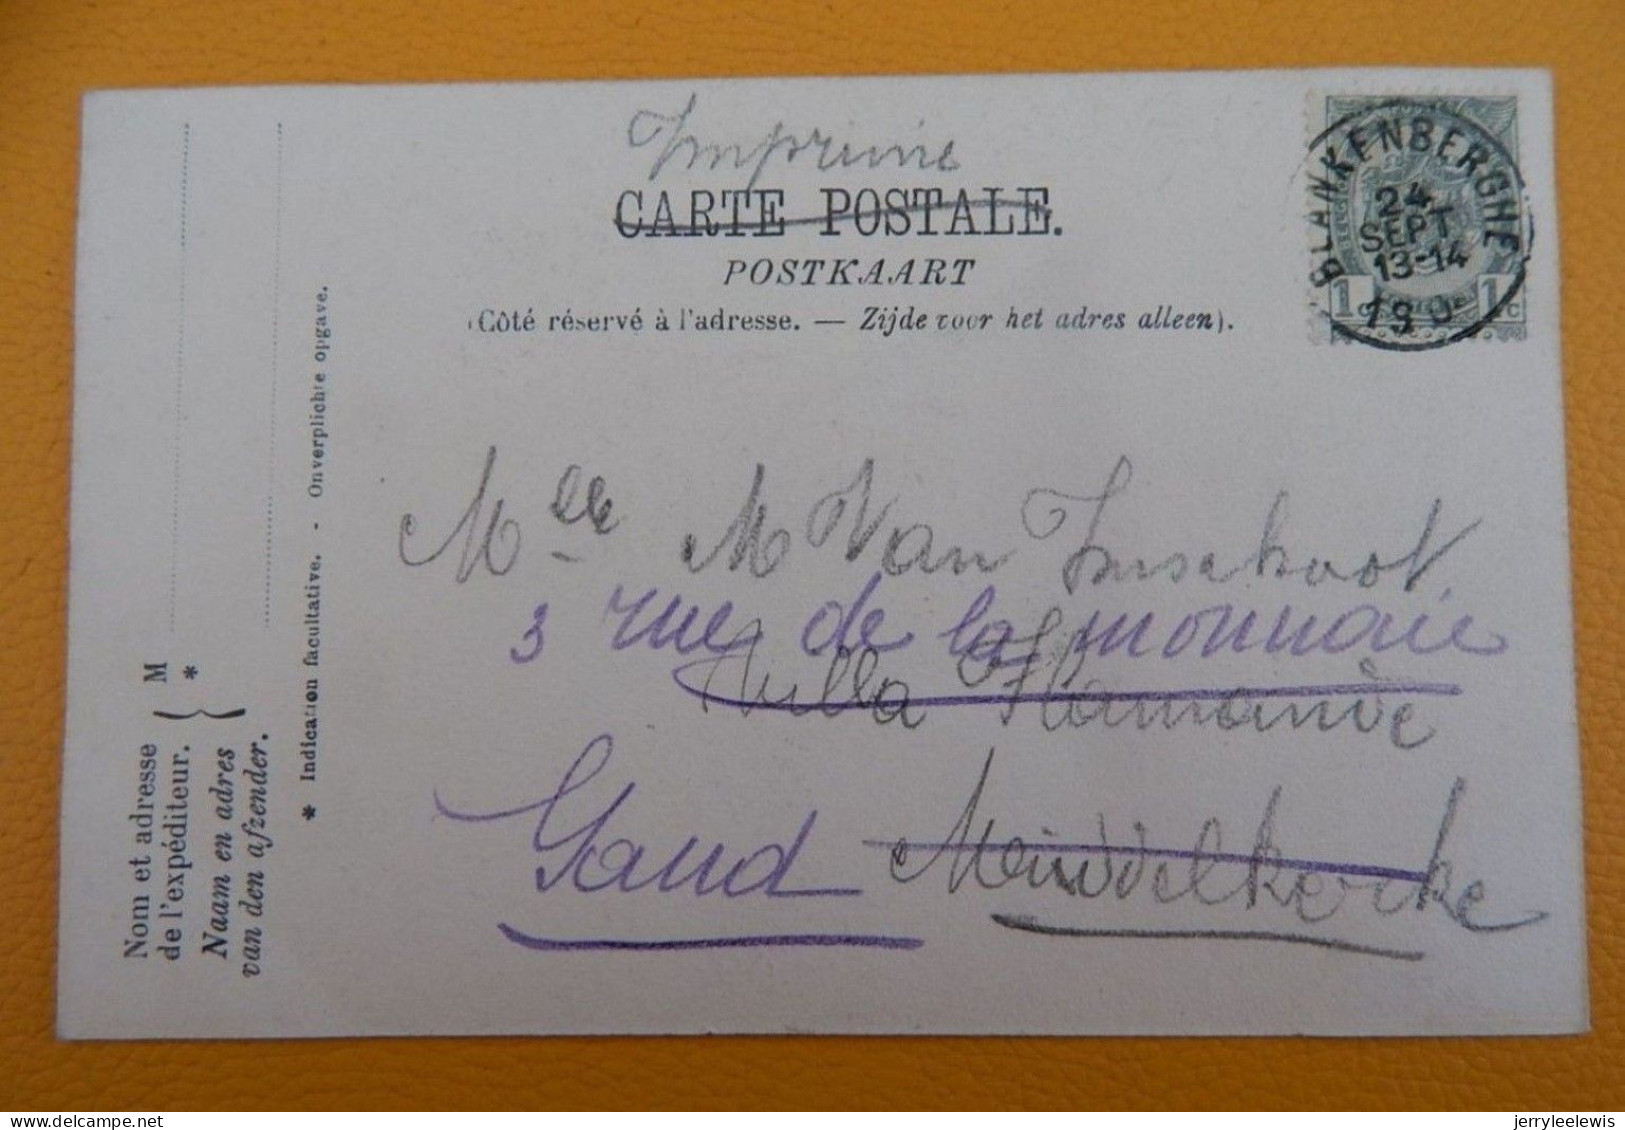 Imprimé
CARTE POSTALE.
POSTKAART
(Côté réservé à l'adresse. — Zijde voor het adres alleen).
BLANKENBERGHE
24
SEPT
13-14
190
1c 1c
Mlle M Van Imschoot
3 rue de la monnaie
Villa
Gand Middelkerke
M
*
Nom et adresse
de l'expéditeur.
Naam en adres
van den afzender.
* Indication facultative. - Onverplichte opgave.
jerryleelewis